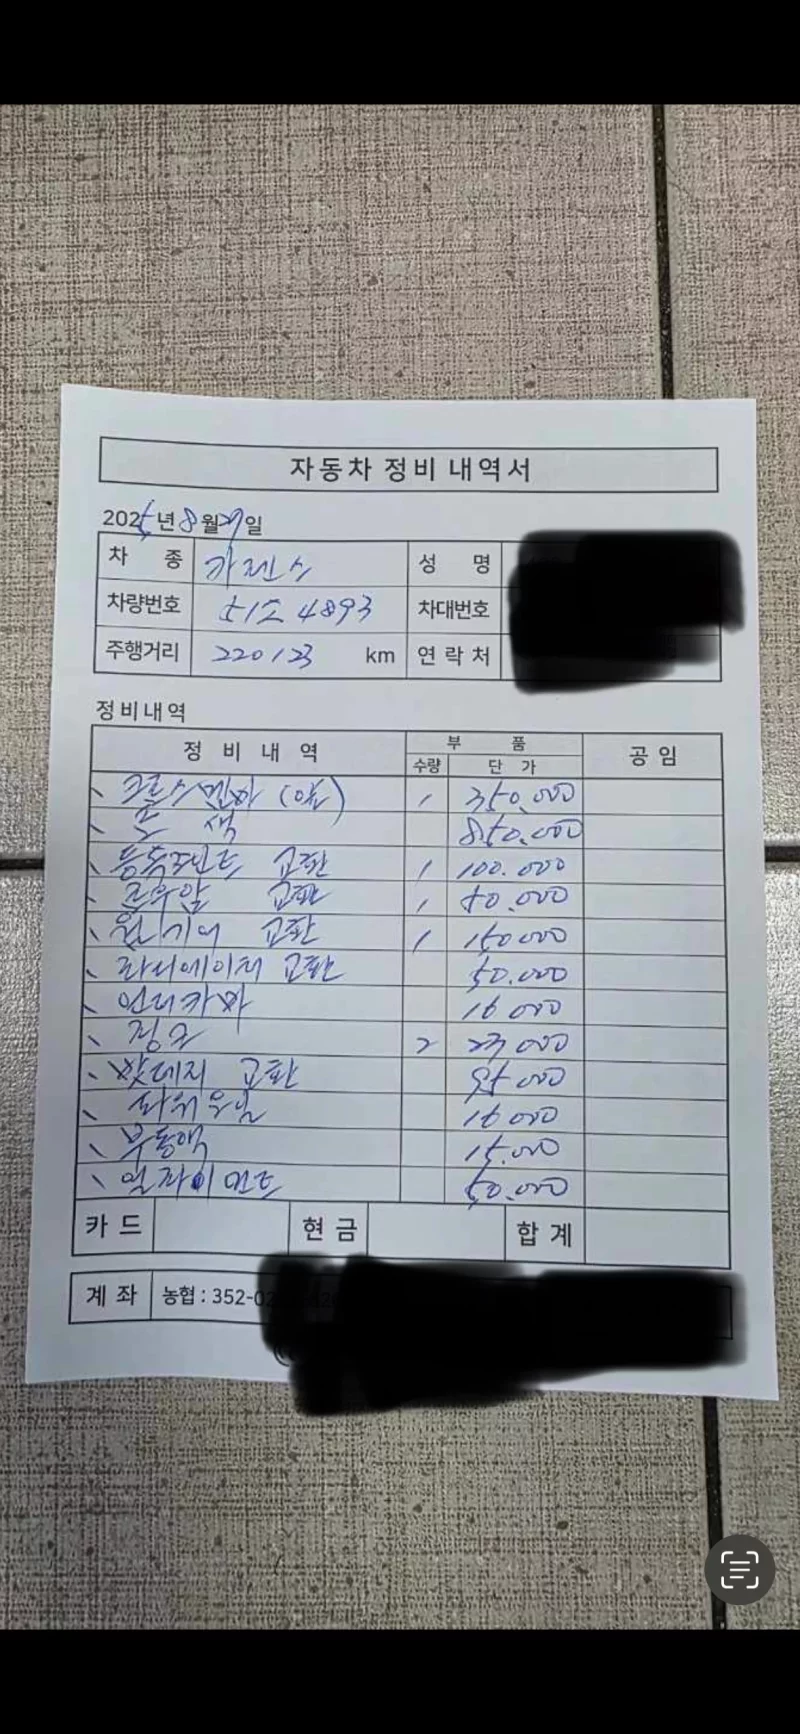 자동차 정비 내역서
2025년 8월 29일
차 종 카렌스 성 명
차량번호 4893 차대번호
주행거리 220123 km 연락처
정비내역
정 비 내 역 부 품 공 임
수량 단 가
크로스멤바 1 350.000
도 색 850.000
등속조인트 교환 1 100.000
로우암 교환 1 50.000
원기어 교환 1 150000
라지에이터 교환 50.000
언더카바 16000
2 23000
밧데리 교환 95000
파워오일 16000
부동액 15.000
얼라이먼트 50.000
카드 현금 합계
계좌 농협 : 352-02